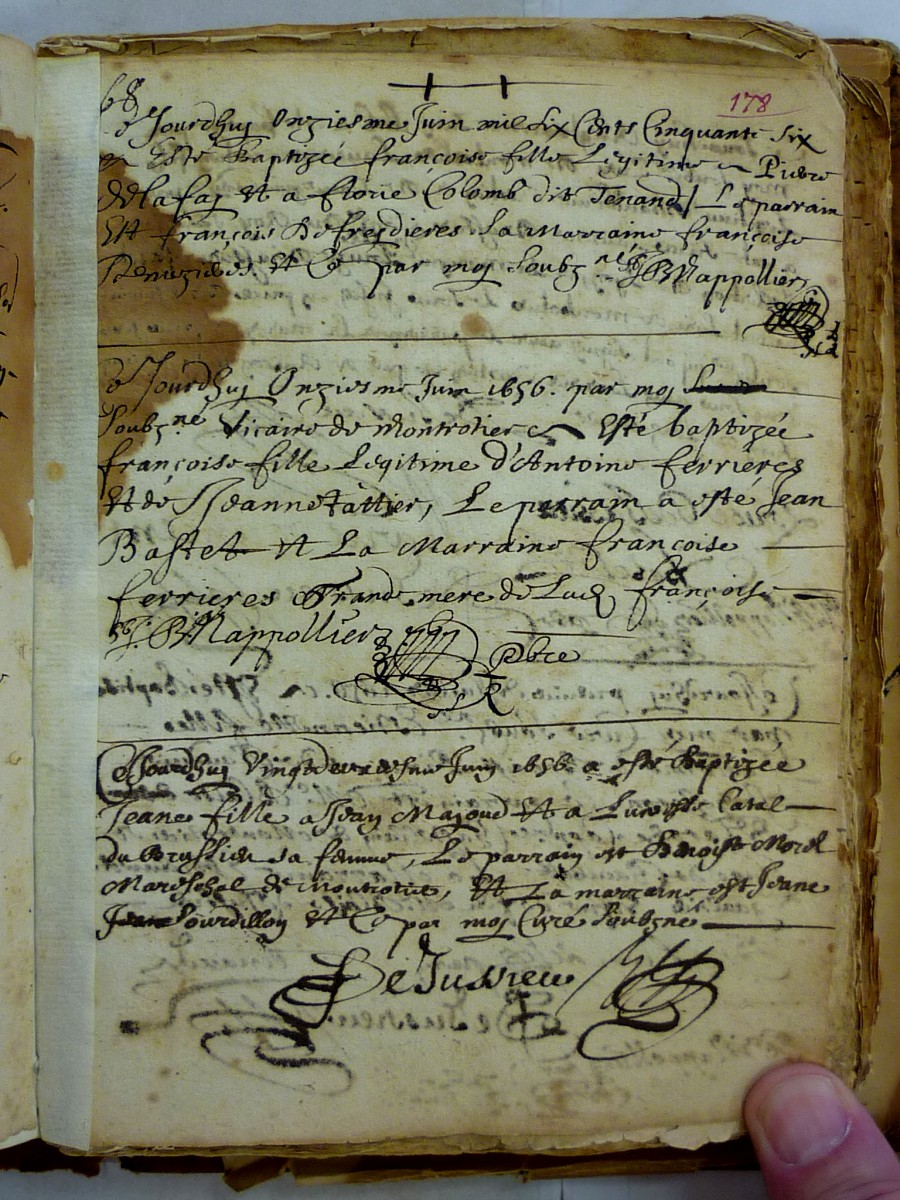 68
178
Jourdhuy Onziesme Juin mil Six Cents Cinquante Six
Esté Baptizée françoise fille Legitime Pierre
Delafay Et a florie Colomb dit Tenand / Le parrain
Est françois Defresdieres La Marraine françoise
Et Ce par moy Soubzné J BMappollier
Ce Jourdhuy Onziesme Juin 1656. par moy
Soubzné Vicaire de Montrotier a Esté baptizée
françoise fille Legitime d'Antoine ferrieres
Et de Jeanne tattier, Le parrain a esté Jean
Bastet Et La Marraine francoise
ferrieres Grand mere de Lad françoise
J. BMappollier Pbre
Ce Jourdhuy Juin 1656 a esté Baptizée
Jeane fille a Jean Majoud Et a Catal
du Brussieu sa femme, Le parrain est Benoist Morel
Mareschal de Montrotier, Et La marraine est Jeane
Sourdillon Et Ce par moy Curé Soubzné
De Jussieu